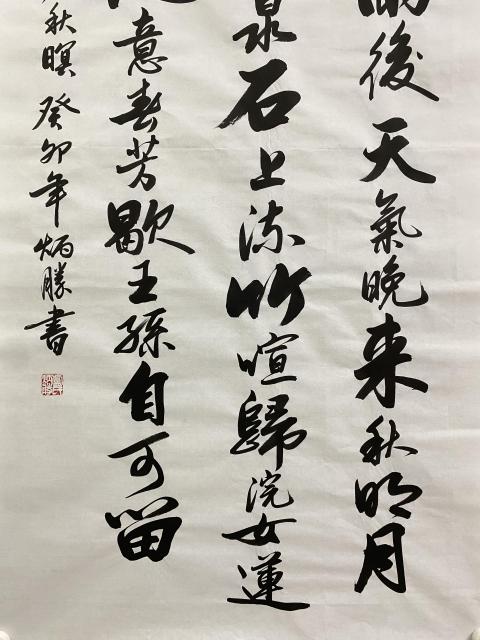 雨後天氣晚来秋明月
泉石上流竹喧歸浣女蓮
意春芳歇王孫自可留
秋暝 癸卯年炳勝書